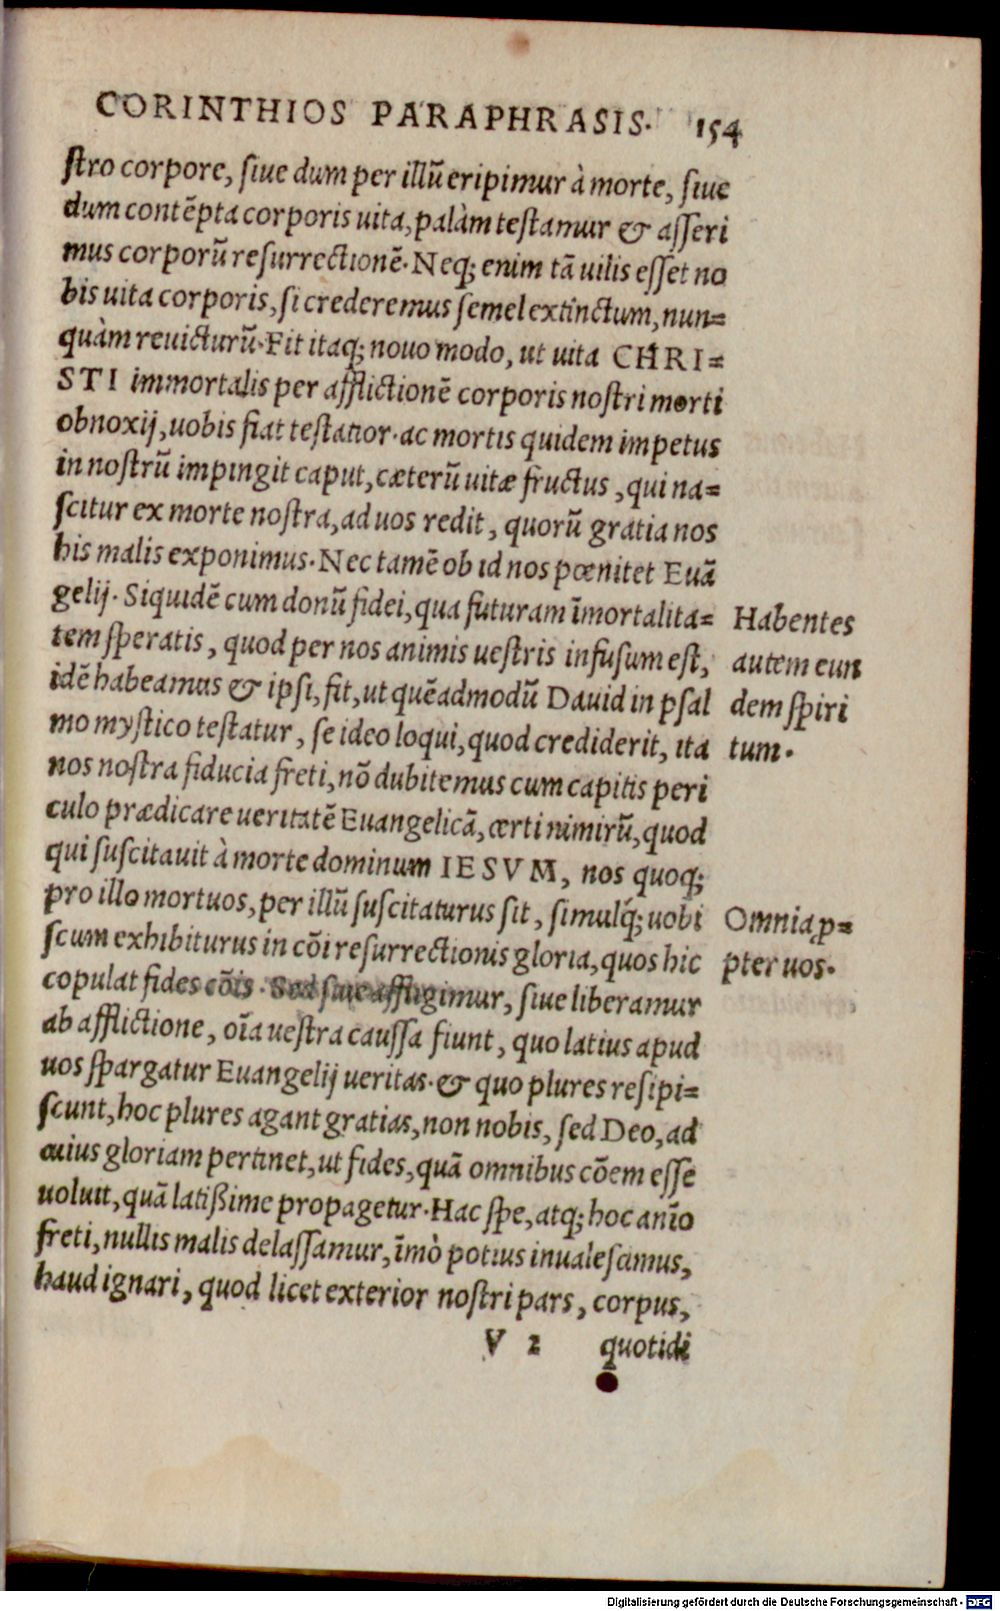 CORINTHIOS PARAPHRASIS. 154
stro corpore, siue dum per illũ eripimur à morte, siue
dum contẽpta corporis uita, palàm testamur & asseri
mus corporũ resurrectionẽ. Neq; enim tã uilis esset no
bis uita corporis, si crederemus semel extinctum, nun=
quàm reuicturũ. Fit itaq; nouo modo, ut uita CHRI=
STI immortalis per afflictionẽ corporis nostri morti
obnoxij, uobis fiat testatior. ac mortis quidem impetus
in nostrũ impingit caput, cæterũ uitæ fructus, qui na=
scitur ex morte nostra, ad uos redit, quorũ gratia nos
his malis exponimus. Nec tamẽ ob id nos pœnitet Euã
gelij. Siquidẽ cum donũ fidei, qua futuram ĩmortalita=
tem speratis, quod per nos animis uestris infusum est,
idẽ habeamus & ipsi, fit, ut quẽadmodũ Dauid in psal
mo mystico testatur, se ideo loqui, quod crediderit, ita
nos nostra fiducia freti, nõ dubitemus cum capitis peri
culo prædicare ueritatẽ Euangelicã, certi nimirũ, quod
qui suscitauit à morte dominum IESVM, nos quoq;
pro illo mortuos, per illũ suscitaturus sit, simulq́; uobi
scum exhibiturus in cõi resurrectionis gloria, quos hic
copulat fides cõis. Sed siue affligimur, siue liberamur
ab afflictione, oĩa uestra caussa fiunt, quo latius apud
uos spargatur Euangelij ueritas. & quo plures resipi=
scunt, hoc plures agant gratias, non nobis, sed Deo, ad
cuius gloriam pertinet, ut fides, quã omnibus cõem esse
uoluit, quã latißime propagetur. Hac spe, atq; hoc anĩo
freti, nullis malis delassamur, ĩmò potius inualescimus,
haud ignari, quod licet exterior nostri pars, corpus,
V 2 quotidi
Habentes
autem eun
dem spiri
tum.
Omnia ꝓ=
pter uos.
Digitalisierung gefördert durch die Deutsche Forschungsgemeinschaft - DFG